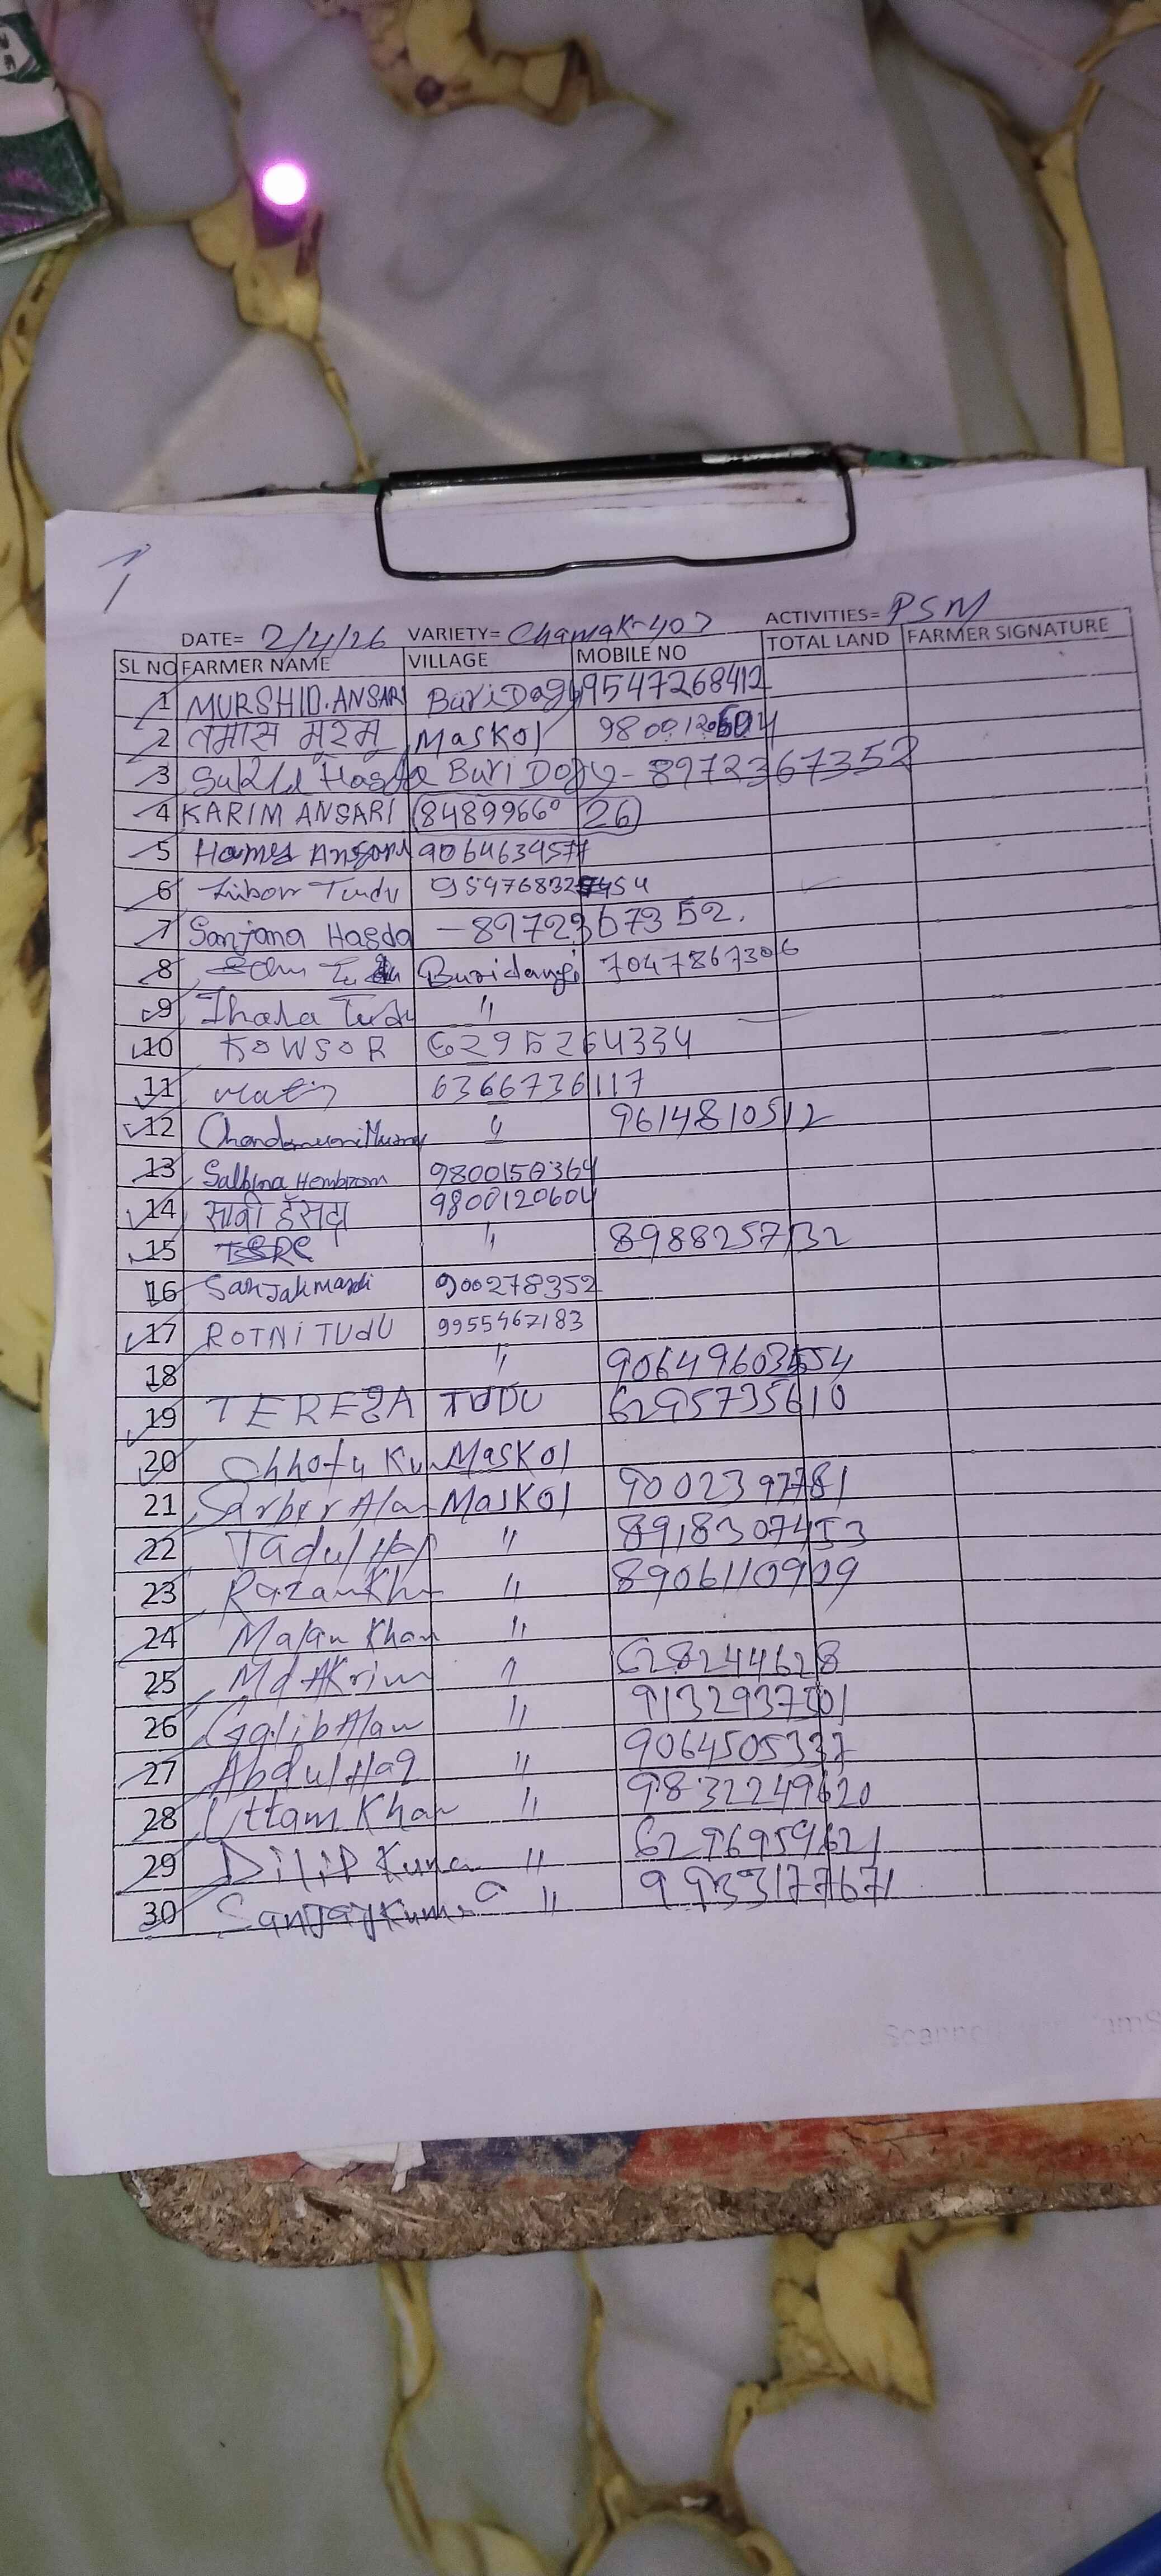 DATE= 2/4/26 VARIETY= Chamak-403 ACTIVITIES= PSM
SL NO FARMER NAME VILLAGE MOBILE NO TOTAL LAND FARMER SIGNATURE
1 MURSHID.ANSARI 9547268412
2 तमास मुरमु Maskol
3 Hasda Buri 8972367352
4 KARIM ANSARI (84899660 26)
5 9064634577
6 Tudu
7 Sanjana Hasda - 8972367352.
8 Buridangi 7047867306
9 Ihala Tudu "
10 KOWSOR 6295264334
11 6366736117
12 " 9614810512
13 Salbina Hembrom 9800150364
14 साबी हँसदा 9800120604
15 " 8988257132
16 900278352
17 ROTNI TUdU 9955467183
18 "
19 TEREZA TUDU 6295735610
20 Chhotu Maskol
21 Sarber Alam Maskol 9002397781
22 " 8918307453
23 " 8906110909
24 Khan "
25 Md AKrim " 628244628
26 Galib Alam " 9132937301
27 Abdul Haq " 9064505337
28 Uttam Khan " 9832249620
29 Dilip Kuma " 6296959621
30 Sanjay Kumar " 9933177671